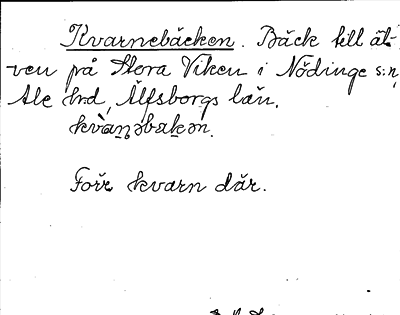 Kvarnebäcken. Bäck till äl-
ven på Stora Viken i Nödinge s:n,
Ale hnd, Älfsborgs län.
kvà̱ṇəbækən.
Förr kvarn där.